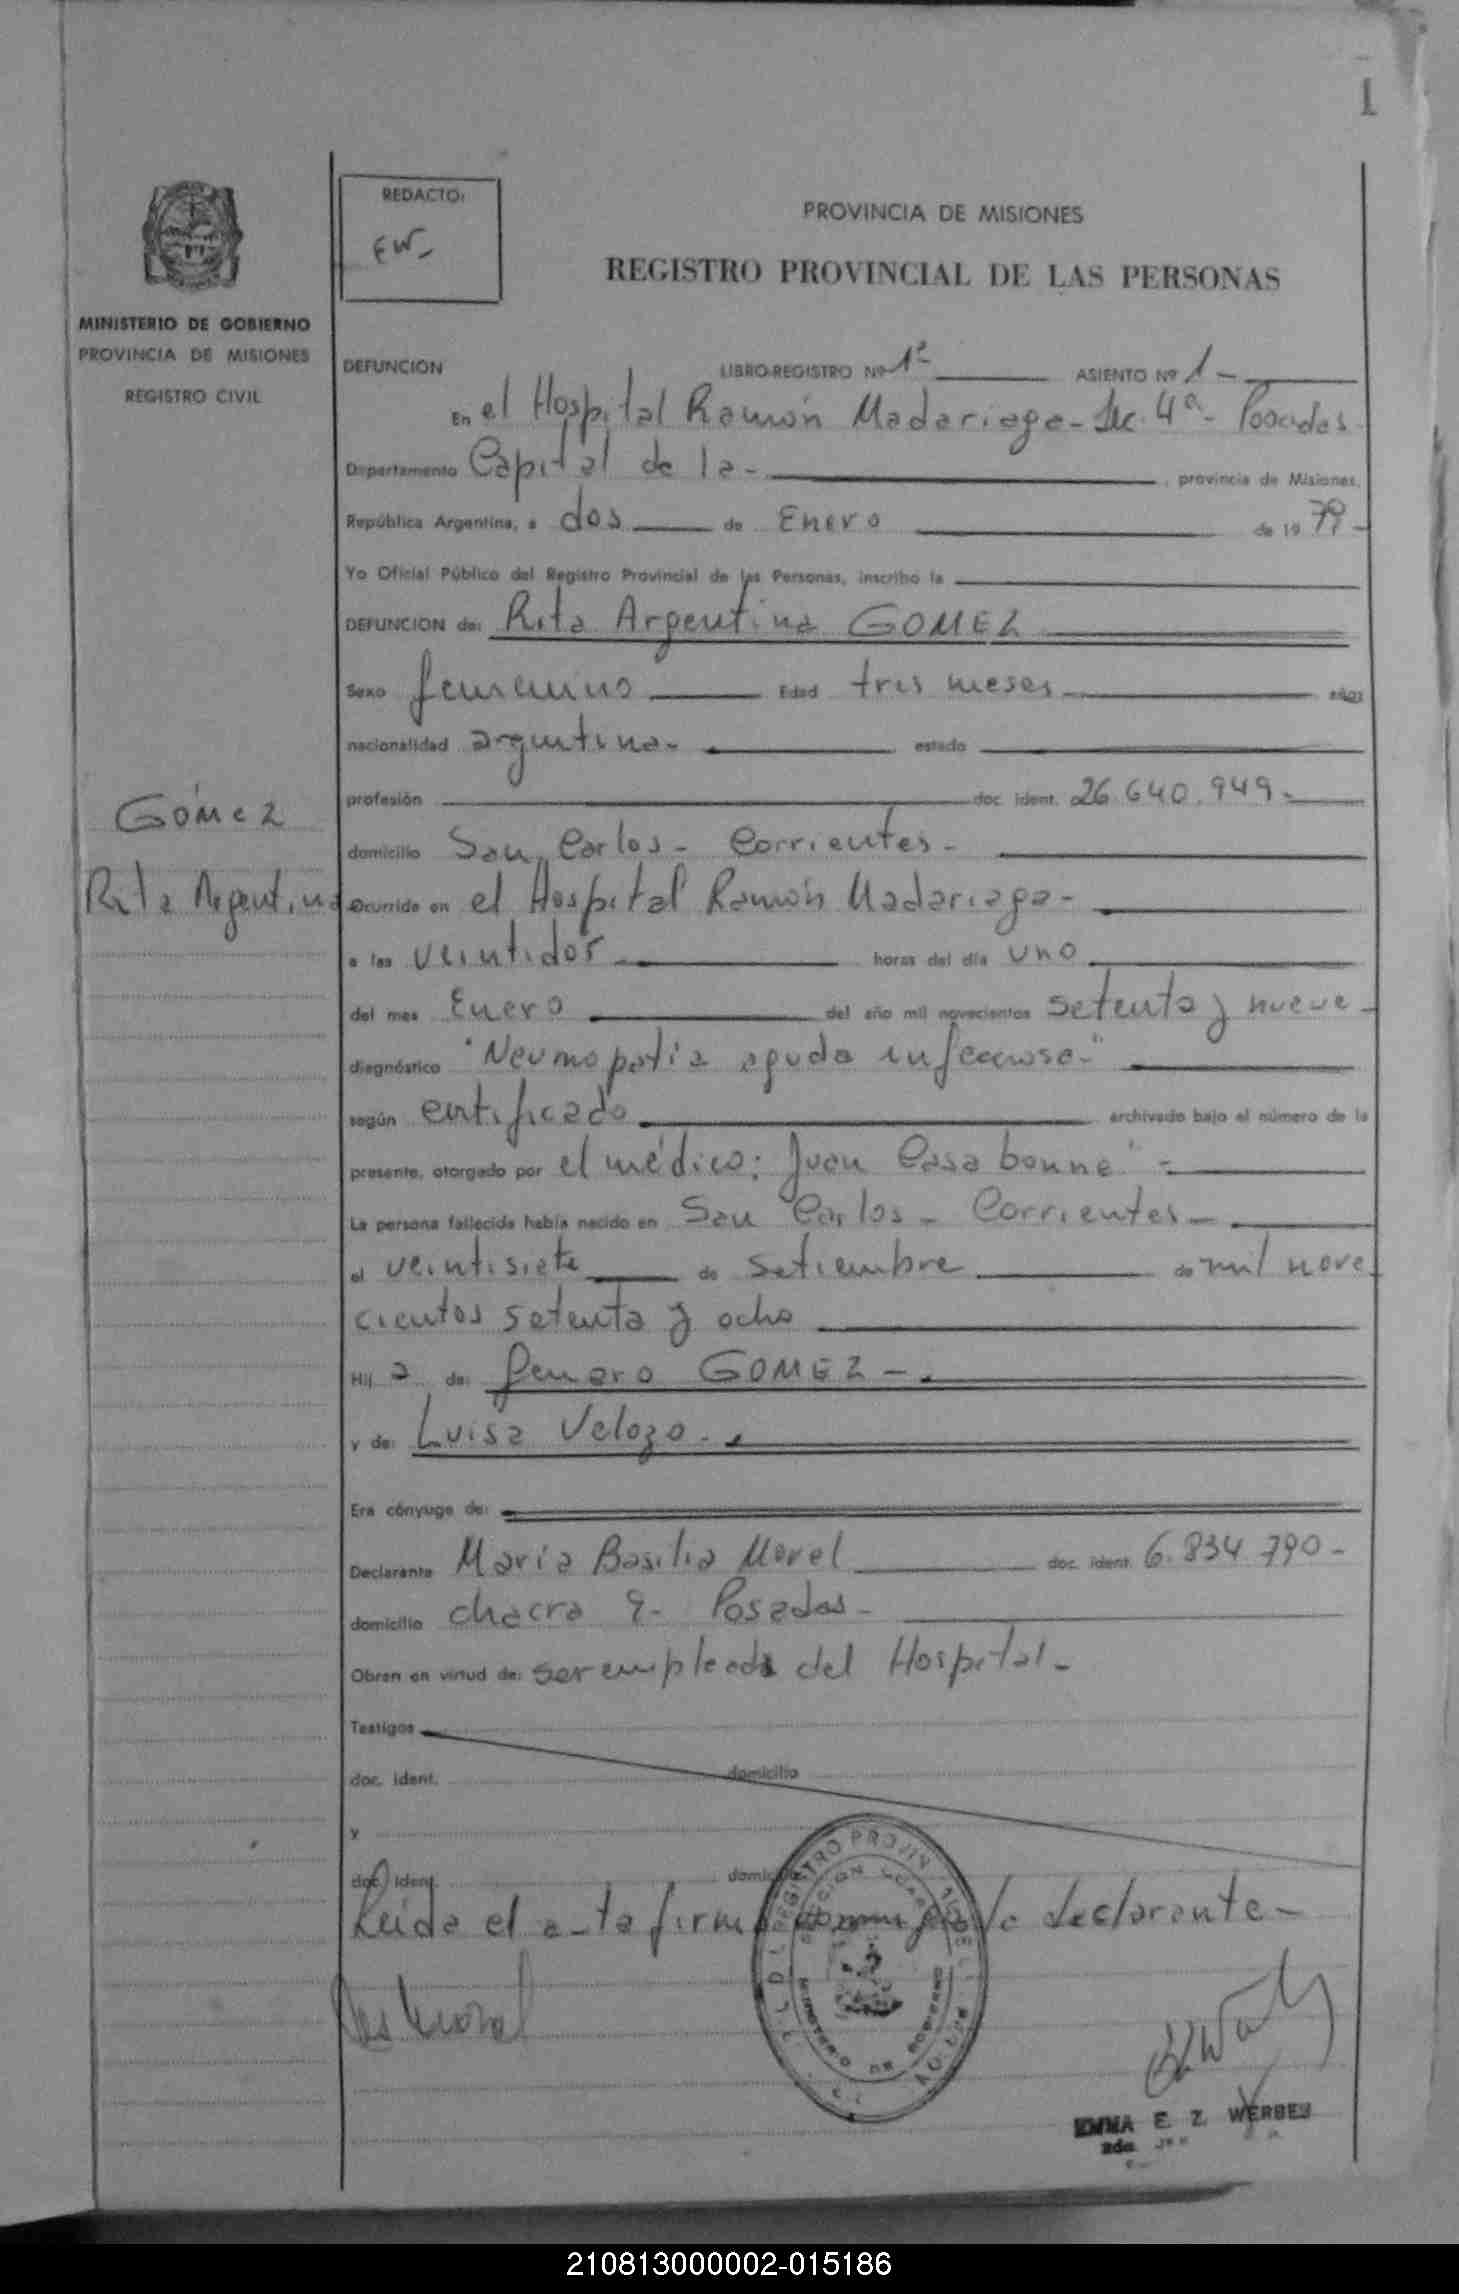 1
REDACTO:
EW-
PROVINCIA DE MISIONES
REGISTRO PROVINCIAL DE LAS PERSONAS
MINISTERIO DE GOBIERNO
PROVINCIA DE MISIONES
REGISTRO CIVIL
DEFUNCION LIBRO-REGISTRO Nº 1º ASIENTO Nº 1-
En el Hospital Ramón Madariaga- Sec. 4ª- Posadas-
Departamento Capital de la- , provincia de Misiones,
República Argentina, a dos de Enero de 19 79-
Yo Oficial Público del Registro Provincial de las Personas, inscribo la
DEFUNCION de: Rita Argentina GOMEZ
Sexo femenino Edad tres meses años
nacionalidad argentina- estado
profesión doc. ident. 26.640.949-
domicilio San Carlos- Corrientes-
Gómez
Rita Argentina
Ocurrida en el Hospital Ramón Madariaga-
a las veintidos horas del día uno
del mes Enero del año mil novecientos setenta y nueve-
diagnóstico "Neumopatia aguda infecciosa-"
según certificado archivado bajo el número de la
presente, otorgado por el médico: Juan Casabonne"-
La persona fallecida había nacido en San Carlos- Corrientes-
el veintisiete de setiembre de mil nove
cientos setenta y ocho
Hij a de: Genaro GOMEZ-.
y de: Luisa Velozo-.
Era cónyuge de:
Declarante María Basilia Morel doc. ident. 6.834.790-
domicilio chacra 9- Posadas-
Obran en virtud de: ser empleada del Hospital-
Testigos
doc. ident. domicilio
y
doc. ident. domicilio
Leida el acta firma conmigo la declarante-
MINISTERIO DE GOBIERNO
EMMA E. Z. WERBES
210813000002-015186